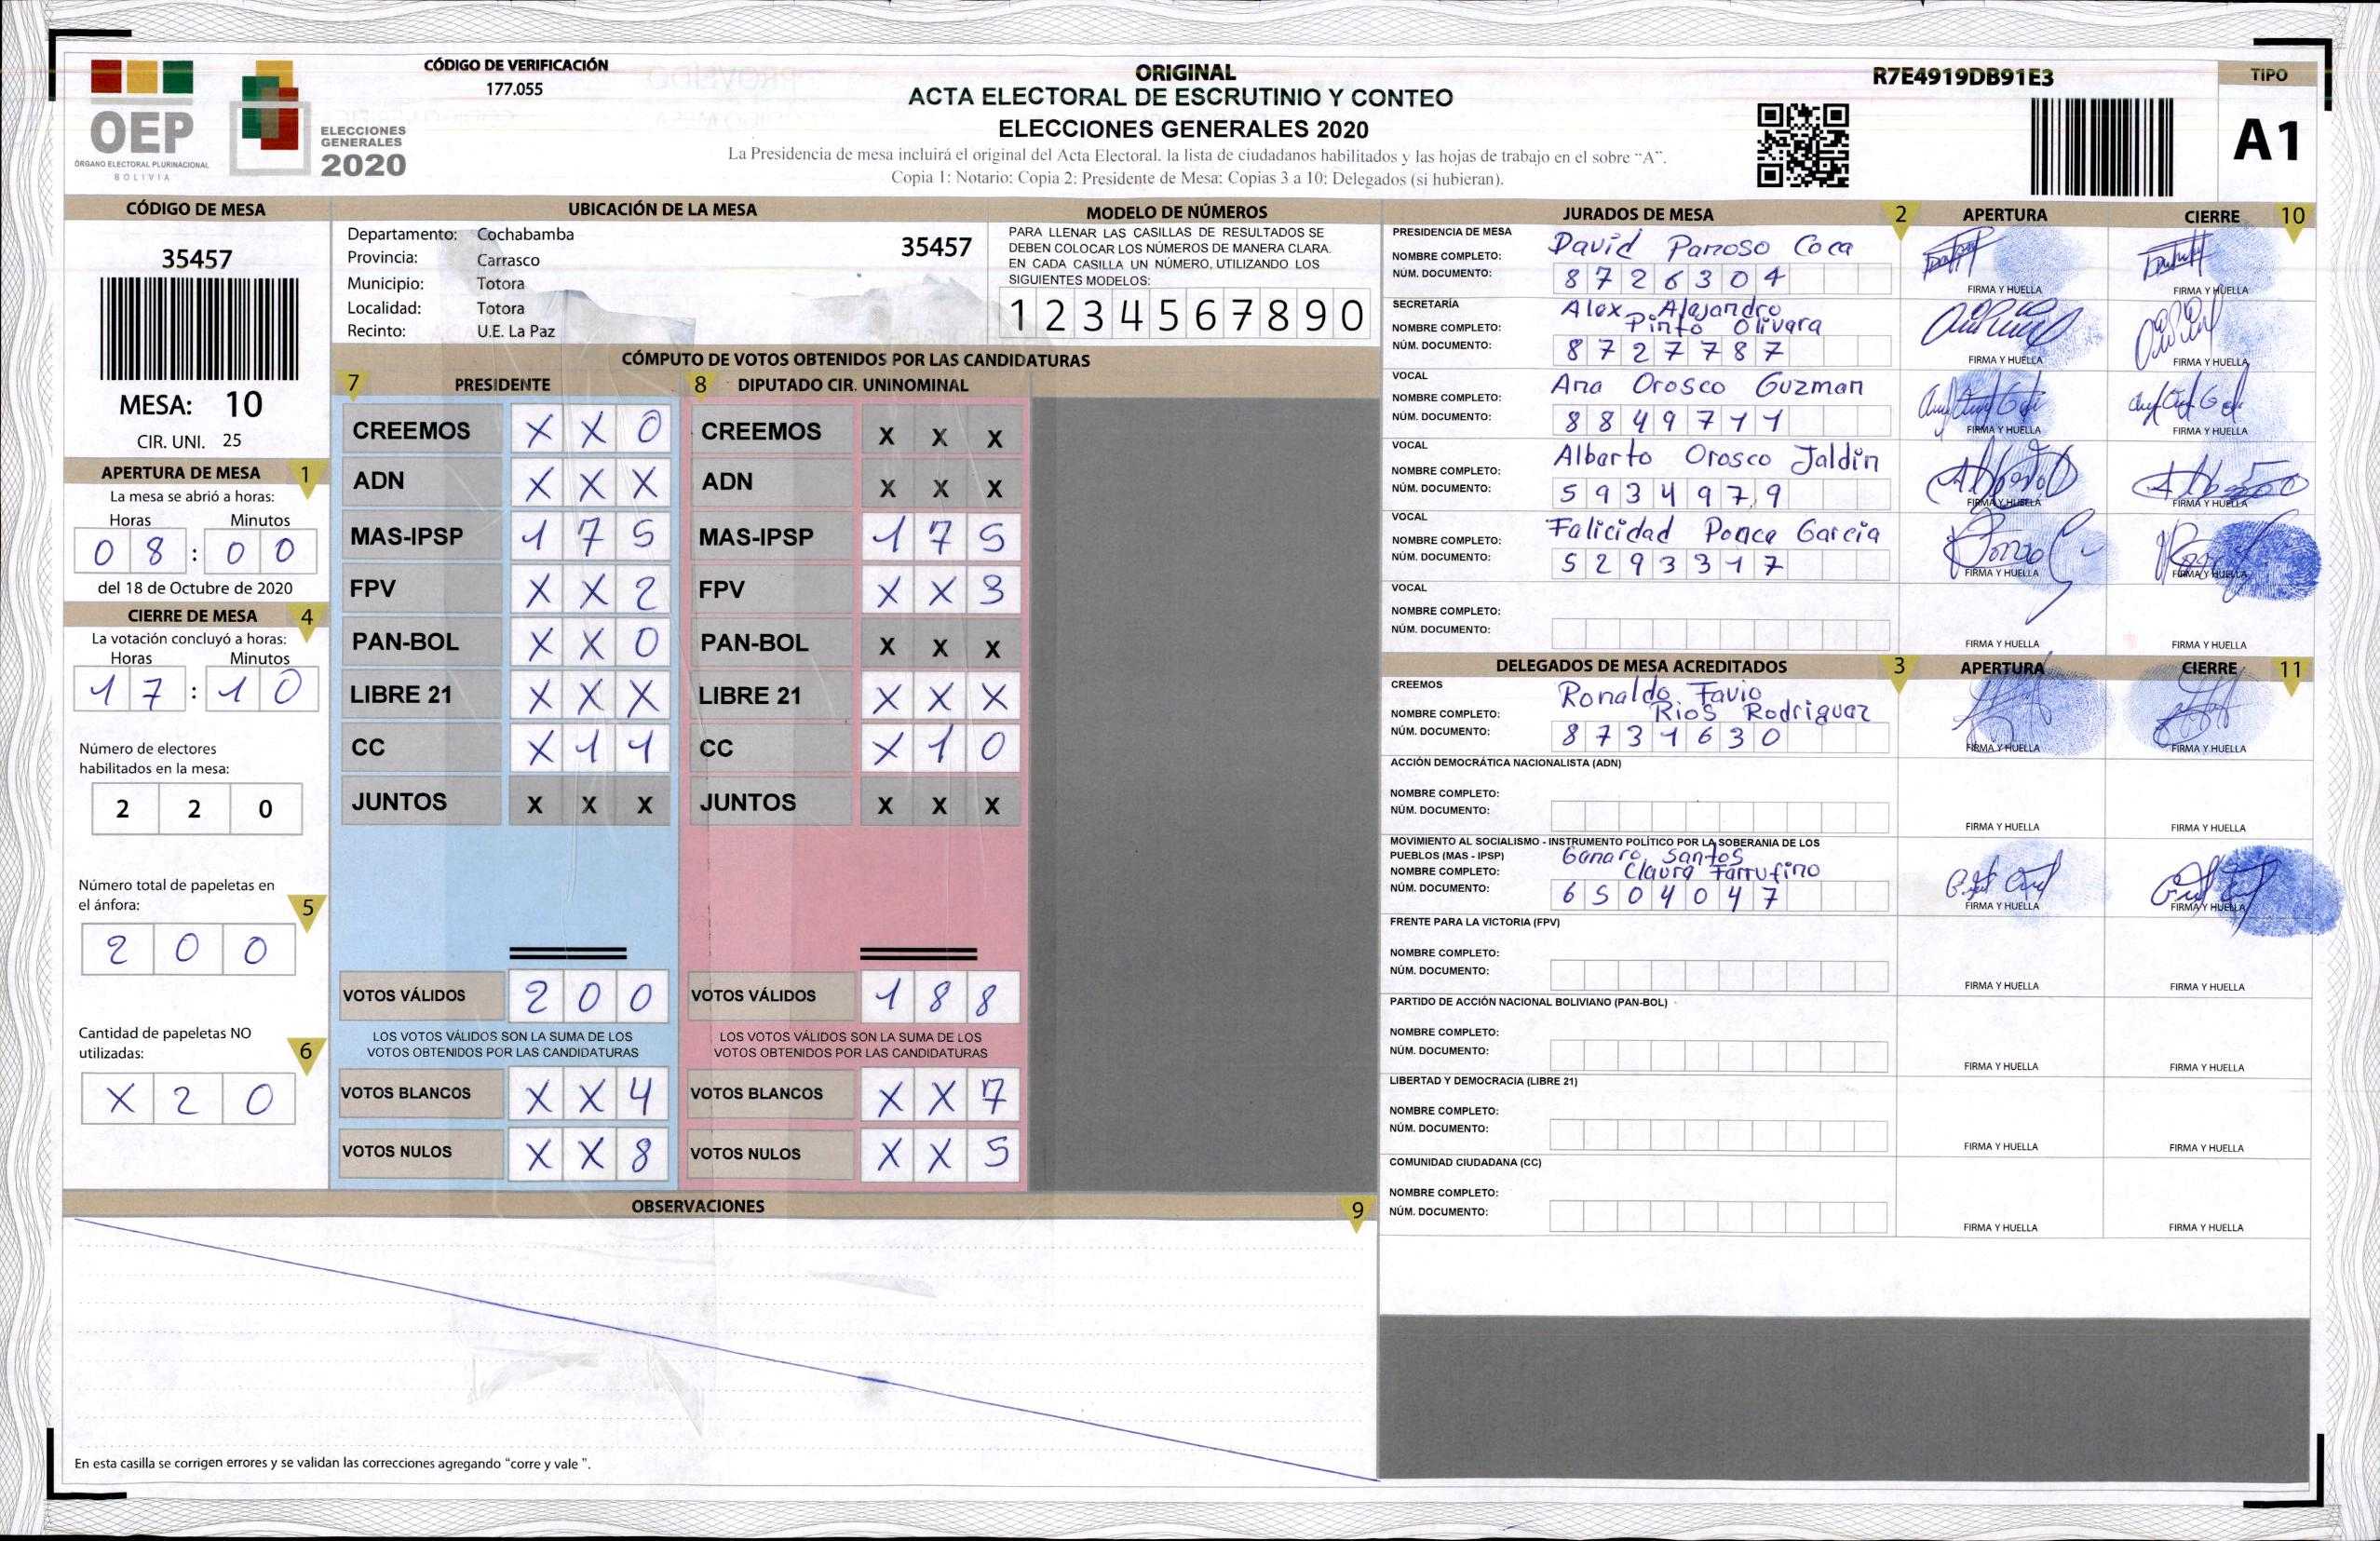 OEP
ÓRGANO ELECTORAL PLURINACIONAL
BOLIVIA
ELECCIONES
GENERALES
2020
CÓDIGO DE VERIFICACIÓN
177.055
ORIGINAL
ACTA ELECTORAL DE ESCRUTINIO Y CONTEO
ELECCIONES GENERALES 2020
La Presidencia de mesa incluirá el original del Acta Electoral. la lista de ciudadanos habilitados y las hojas de trabajo en el sobre “A”.
Copia 1: Notario: Copia 2: Presidente de Mesa: Copias 3 a 10: Delegados (si hubieran).
R7E4919DB91E3
TIPO
A1
CÓDIGO DE MESA
35457
MESA: 10
CIR. UNI. 25
APERTURA DE MESA 1
La mesa se abrió a horas:
Horas Minutos
0 8 : 0 0
del 18 de Octubre de 2020
CIERRE DE MESA 4
La votación concluyó a horas:
Horas Minutos
1 7 : 1 0
Número de electores
habilitados en la mesa:
2 2 0
Número total de papeletas en
el ánfora: 5
2 0 0
Cantidad de papeletas NO
utilizadas: 6
X 2 0
UBICACIÓN DE LA MESA
Departamento: Cochabamba 35457
Provincia: Carrasco
Municipio: Totora
Localidad: Totora
Recinto: U.E. La Paz
MODELO DE NÚMEROS
PARA LLENAR LAS CASILLAS DE RESULTADOS SE
DEBEN COLOCAR LOS NÚMEROS DE MANERA CLARA.
EN CADA CASILLA UN NÚMERO, UTILIZANDO LOS
SIGUIENTES MODELOS:
1 2 3 4 5 6 7 8 9 0
CÓMPUTO DE VOTOS OBTENIDOS POR LAS CANDIDATURAS
7 PRESIDENTE 8 DIPUTADO CIR. UNINOMINAL
CREEMOS X X 0 CREEMOS X X X
ADN X X X ADN X X X
MAS-IPSP 1 7 5 MAS-IPSP 1 7 5
FPV X X 2 FPV X X 3
PAN-BOL X X 0 PAN-BOL X X X
LIBRE 21 X X X LIBRE 21 X X X
CC X 1 1 CC X 1 0
JUNTOS X X X JUNTOS X X X
VOTOS VÁLIDOS 2 0 0 VOTOS VÁLIDOS 1 8 8
LOS VOTOS VÁLIDOS SON LA SUMA DE LOS LOS VOTOS VÁLIDOS SON LA SUMA DE LOS
VOTOS OBTENIDOS POR LAS CANDIDATURAS VOTOS OBTENIDOS POR LAS CANDIDATURAS
VOTOS BLANCOS X X 4 VOTOS BLANCOS X X 7
VOTOS NULOS X X 8 VOTOS NULOS X X 5
OBSERVACIONES 9
En esta casilla se corrigen errores y se validan las correcciones agregando “corre y vale ”.
JURADOS DE MESA 2 APERTURA CIERRE 10
PRESIDENCIA DE MESA
NOMBRE COMPLETO: David Panoso Coca
NÚM. DOCUMENTO: 8 7 2 6 3 0 4
FIRMA Y HUELLA FIRMA Y HUELLA
SECRETARÍA
NOMBRE COMPLETO: Alex Alejandro
Pinto Olivera
NÚM. DOCUMENTO: 8 7 2 7 7 8 7
FIRMA Y HUELLA FIRMA Y HUELLA
VOCAL
NOMBRE COMPLETO: Ana Orosco Guzman
NÚM. DOCUMENTO: 8 8 4 9 7 1 1
FIRMA Y HUELLA FIRMA Y HUELLA
VOCAL
NOMBRE COMPLETO: Alberto Orosco Jaldin
NÚM. DOCUMENTO: 5 9 3 4 9 7 9
FIRMA Y HUELLA FIRMA Y HUELLA
VOCAL
NOMBRE COMPLETO: Felicidad Ponce Garcia
NÚM. DOCUMENTO: 5 2 9 3 3 1 7
FIRMA Y HUELLA FIRMA Y HUELLA
VOCAL
NOMBRE COMPLETO:
NÚM. DOCUMENTO:
FIRMA Y HUELLA FIRMA Y HUELLA
DELEGADOS DE MESA ACREDITADOS 3 APERTURA CIERRE 11
CREEMOS
NOMBRE COMPLETO: Ronaldo Favio
Rios Rodriguez
NÚM. DOCUMENTO: 8 7 3 1 6 3 0
FIRMA Y HUELLA FIRMA Y HUELLA
ACCIÓN DEMOCRÁTICA NACIONALISTA (ADN)
NOMBRE COMPLETO:
NÚM. DOCUMENTO:
FIRMA Y HUELLA FIRMA Y HUELLA
MOVIMIENTO AL SOCIALISMO - INSTRUMENTO POLÍTICO POR LA SOBERANIA DE LOS
PUEBLOS (MAS - IPSP)
NOMBRE COMPLETO: Genaro Santos
Claure Farrufino
NÚM. DOCUMENTO: 6 5 0 4 0 4 7
FIRMA Y HUELLA FIRMA Y HUELLA
FRENTE PARA LA VICTORIA (FPV)
NOMBRE COMPLETO:
NÚM. DOCUMENTO:
FIRMA Y HUELLA FIRMA Y HUELLA
PARTIDO DE ACCIÓN NACIONAL BOLIVIANO (PAN-BOL)
NOMBRE COMPLETO:
NÚM. DOCUMENTO:
FIRMA Y HUELLA FIRMA Y HUELLA
LIBERTAD Y DEMOCRACIA (LIBRE 21)
NOMBRE COMPLETO:
NÚM. DOCUMENTO:
FIRMA Y HUELLA FIRMA Y HUELLA
COMUNIDAD CIUDADANA (CC)
NOMBRE COMPLETO:
NÚM. DOCUMENTO:
FIRMA Y HUELLA FIRMA Y HUELLA